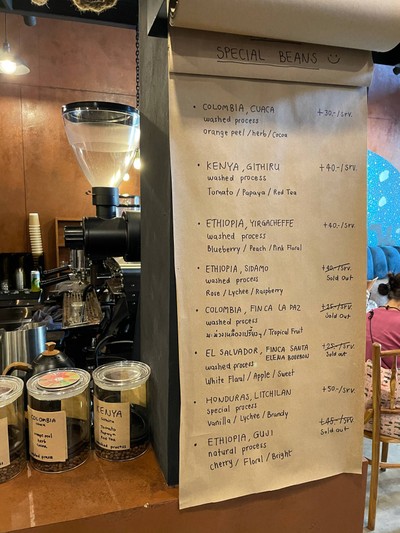 SPECIAL BEANS
• COLOMBIA, CUACA +30-/Srv.
washed process
orange peel / herb / Cocoa
• KENYA, GITHIRU +40-/Srv.
washed process
Tomato / Papaya / Red Tea
• ETHIOPIA, YIRGACHEFFE +40-/Srv.
washed process
Blueberry / Peach / Pink Floral
• ETHIOPIA, SIDAMO /Srv.
washed process Sold Out
Rose / Lychee / Raspberry
• COLOMBIA, FINCA LA PAZ /Srv.
washed process Sold Out
/ Tropical Fruit
• EL SALVADOR, FINCA SANTA /Srv.
ELENA BOURBON Sold out
washed process
White Floral / Apple / Sweet
• HONDURAS, LITCHILAN +50-/Srv.
special process
Vanilla / Lychee / Brandy
• ETHIOPIA, GUJI +45-/Srv.
natural process Sold out
cherry / Floral / Bright
COLOMBIA
KENYA